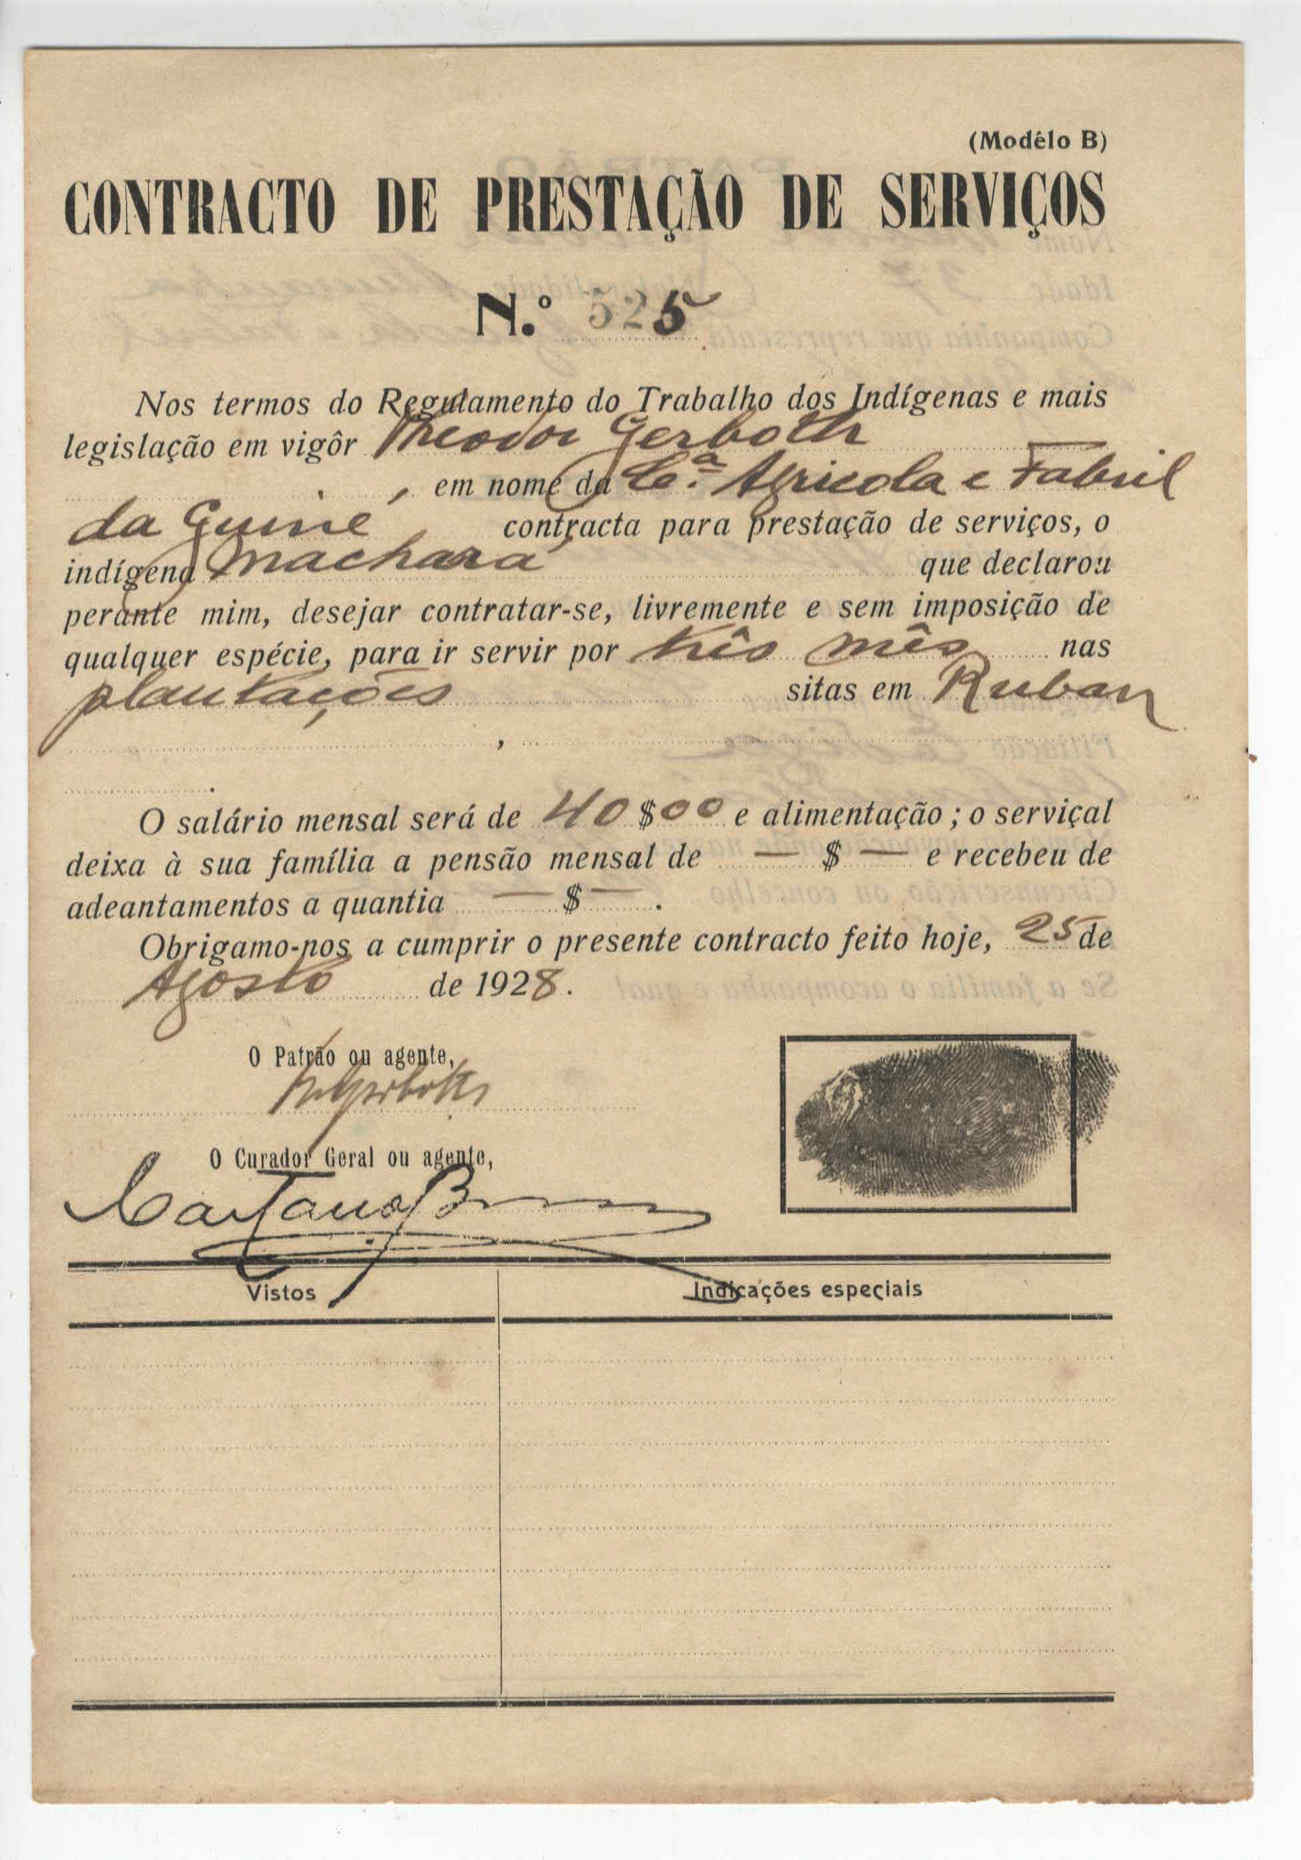 (Modêlo B)
CONTRACTO DE PRESTAÇÃO DE SERVIÇOS
N.º 525
Nos termos do Regulamento do Trabalho dos Indígenas e mais
legislação em vigôr Theodor Gerboth
, em nome da Cª. Agricola e Fabril
da Guiné contracta para prestação de serviços, o
indígena Machará que declarou
perante mim, desejar contratar-se, livremente e sem imposição de
qualquer espécie, para ir servir por três mês nas
plantações sitas em Ruban
,
.
O salário mensal será de 40$00 e alimentação; o serviçal
deixa à sua família a pensão mensal de — $ — e recebeu de
adeantamentos a quantia — $ — .
Obrigamo-nos a cumprir o presente contracto feito hoje, 25 de
Agosto de 1928.
O Patrão ou agente,
Th Gerboth
O Curador Geral ou agente,
Caetano B
Vistos Indicações especiais